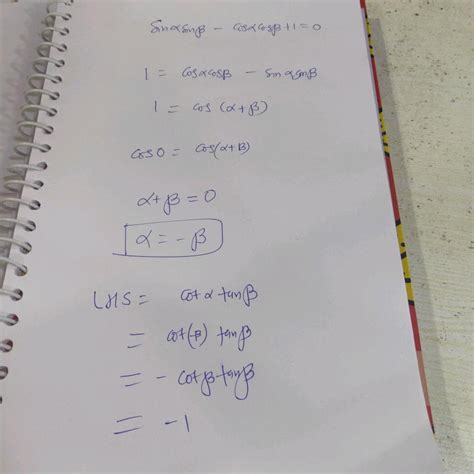 sinα sinβ - cosα cosβ + 1 = 0
1 = cosα cosβ - sinα sinβ
1 = cos (α + β)
cos0 = cos(α+β)
α+β = 0
α = -β
LHS = cotα tanβ
= cot(-β) tanβ
= - cotβ tanβ
= -1